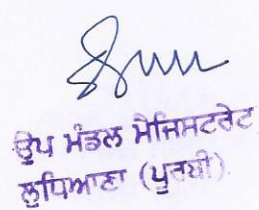 ਉਪ ਮੰਡਲ ਮੈਜਿਸਟਰੇਟ
ਲੁਧਿਆਣਾ (ਪੂਰਬੀ).